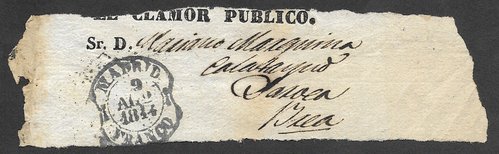 EL CLAMOR PUBLICO.
Sr. D. Mariano Marquina
Calatayud
Daroca
Brea
MADRID
9
AGO
1844
FRANCO